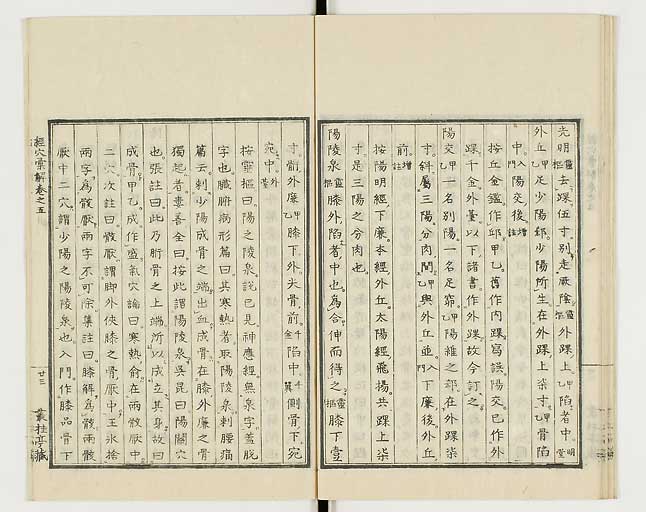 光明靈樞去踝伍寸別走厥陰靈樞外踝上乙甲陷者中明堂
外丘乙甲足少陽郄少陽所生在外踝上柒寸乙甲骨陷
中入門陽交後增註
按丘金鑑作邱甲乙舊作内踝寫誤陽交已作外
踝千金外臺以下諸書作外踝故今訂之
陽交甲乙一名別陽一名足窌甲乙陽維之郄在外踝上柒
寸斜屬三陽分肉間甲乙與外丘並入門下廉後外丘
前增註
按陽明經下廉本經外丘太陽經飛揚共踝上柒
寸是三陽之分肉也
陽陵泉靈樞膝外陷者中也為合伸而得之靈樞膝下壹
寸䯒外廉甲乙膝下外尖骨前千金陷中千金翼側骨下宛
宛中外臺
按靈樞曰陽之陵泉說已見神應經無泉字蓋脫
字也臟腑病形篇曰其寒熱者取陽陵泉刺腰痛
篇云刺少陽成骨之端出血成骨在膝外廉之骨
獨起者㐬善全曰按此謂陽陵泉吳昆曰陽關穴
也張註曰此乃䯒骨之上端所以成立其身故曰
成骨甲乙成作盛氣穴論曰寒熱俞在兩骸厭中
二穴次註曰骸厭謂脚外俠膝之骨厭中王氷捨
兩字為骸厭兩字不可除集註曰膝解為骸兩骸
厭中二穴謂少陽之陽陵泉也入門作膝品骨下
經穴彙解卷之五
廿三
叢桂亭藏